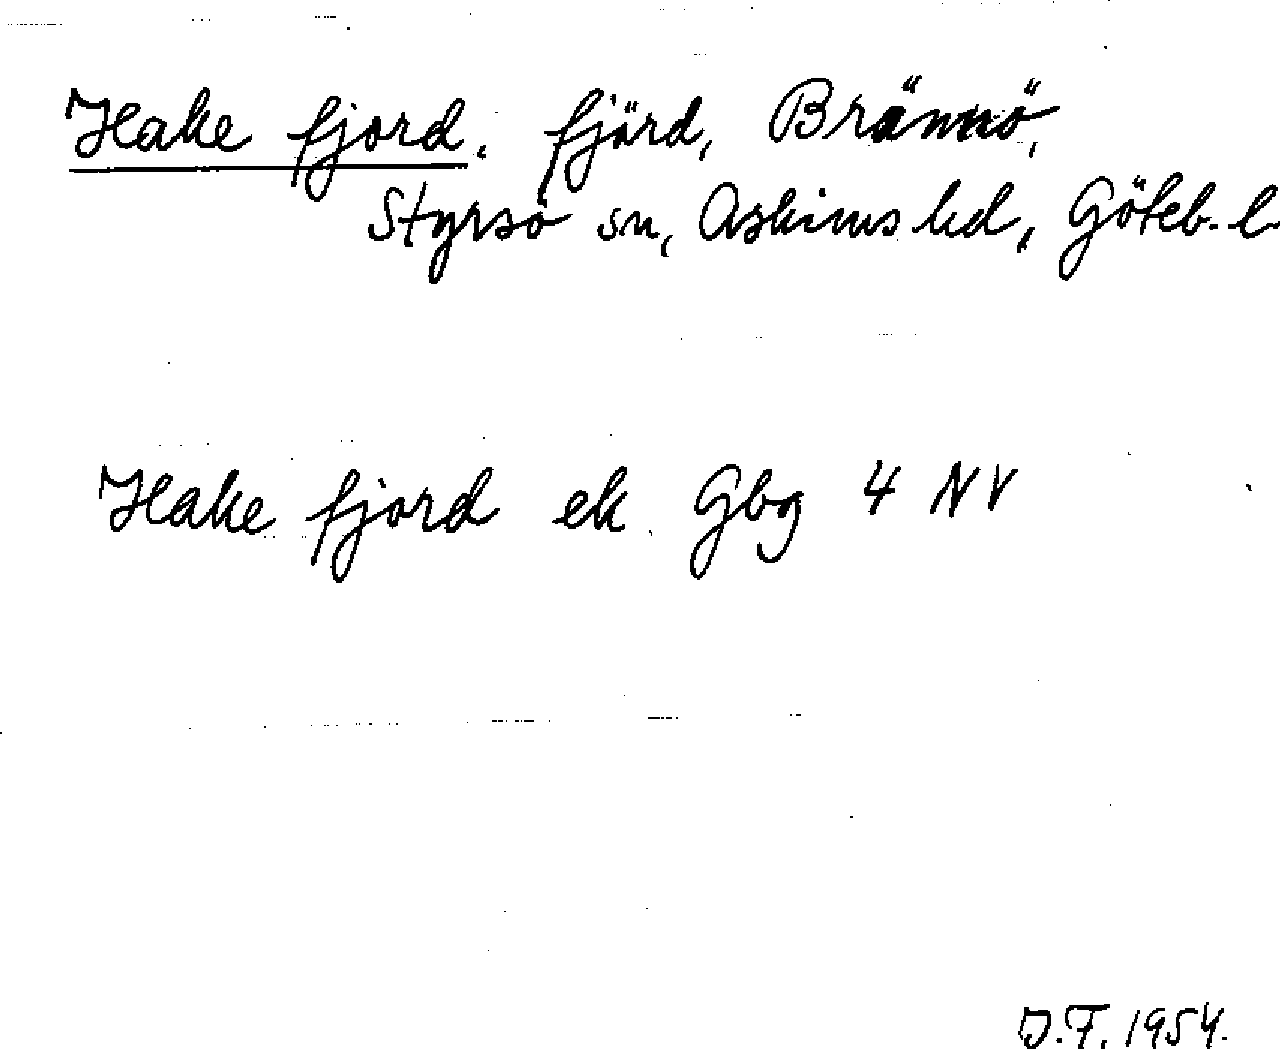 Hake fjord. fjärd, Brännö,
Styrsö sn, Askims hd, Göteb. l.
Hake fjord ek Gbg 4 NV
D.F. 1954.